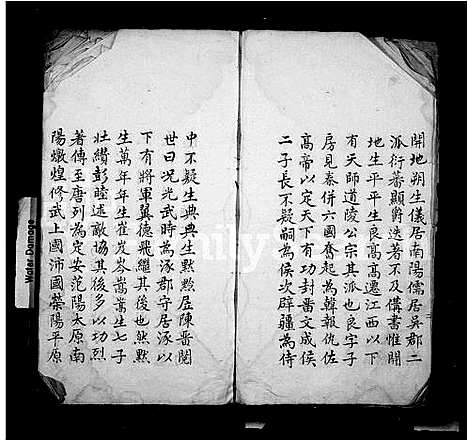 開地朔生儀居南陽儒居吳郡二
派衍蕃顯爵迭著不及備書惟開
地生平平生良髙髙遷江西以下
有天師道陵公宗其派也良字子
房見秦併六國奮起為韓報仇佐
髙帝以定天下有功封畱文成侯
二子長不疑嗣為侯次辟疆為侍
中不疑生典典生黙黙居陳晋閱
世曰況光武時為涿郡守居涿以
下有將軍翼德飛繼其後也然黙
生萬年年生崔岌岑嵩嵩生七子
壯纘彭睦述敵協其後多以功烈
著傳至唐列為定安范陽太原南
陽燉煌修武上國沛國滎陽平原
Water Damage